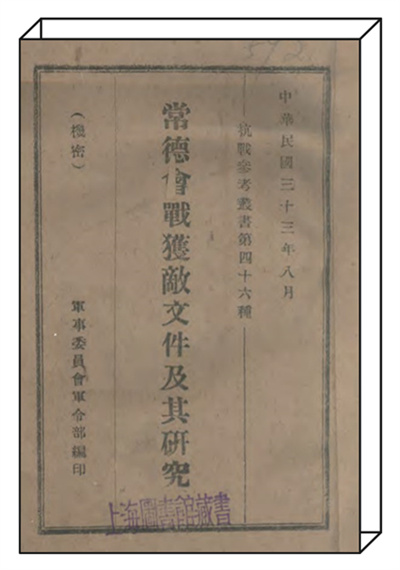 592
中華民國三十三年八月
抗戰參考叢書第四十六種
常德會戰獲敵文件及其研究
（機密）
軍事委員會軍令部編印
上海圖書館藏書